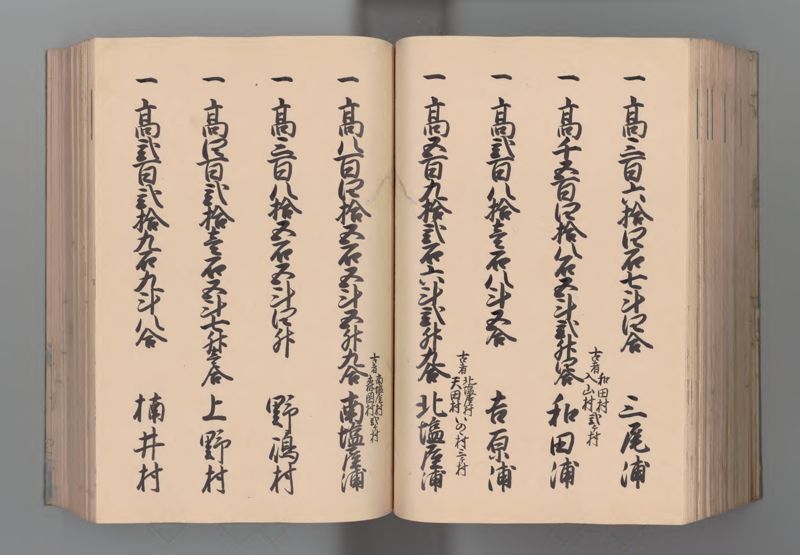 一 高三百六拾四石七斗四合 三尾浦
一 高千五百四拾八石五斗弐升四合 和田浦
古者 和田村 入山村 弐ヶ村
一 高弐百八拾壱石八斗五合 吉原浦
一 高五百九拾弐石六斗弐升九合 北塩屋浦
古者 北塩屋村 天田村 村三ヶ村
一 高八百四拾五石五斗五升九合 南塩屋浦
古者 南塩屋村 森岡村 弐ヶ村
一 高三百八拾五石五斗四升 野嶋村
一 高四百弐拾壱石五斗七升壱合 上野村
一 高弐百弐拾九石九斗八合 楠井村